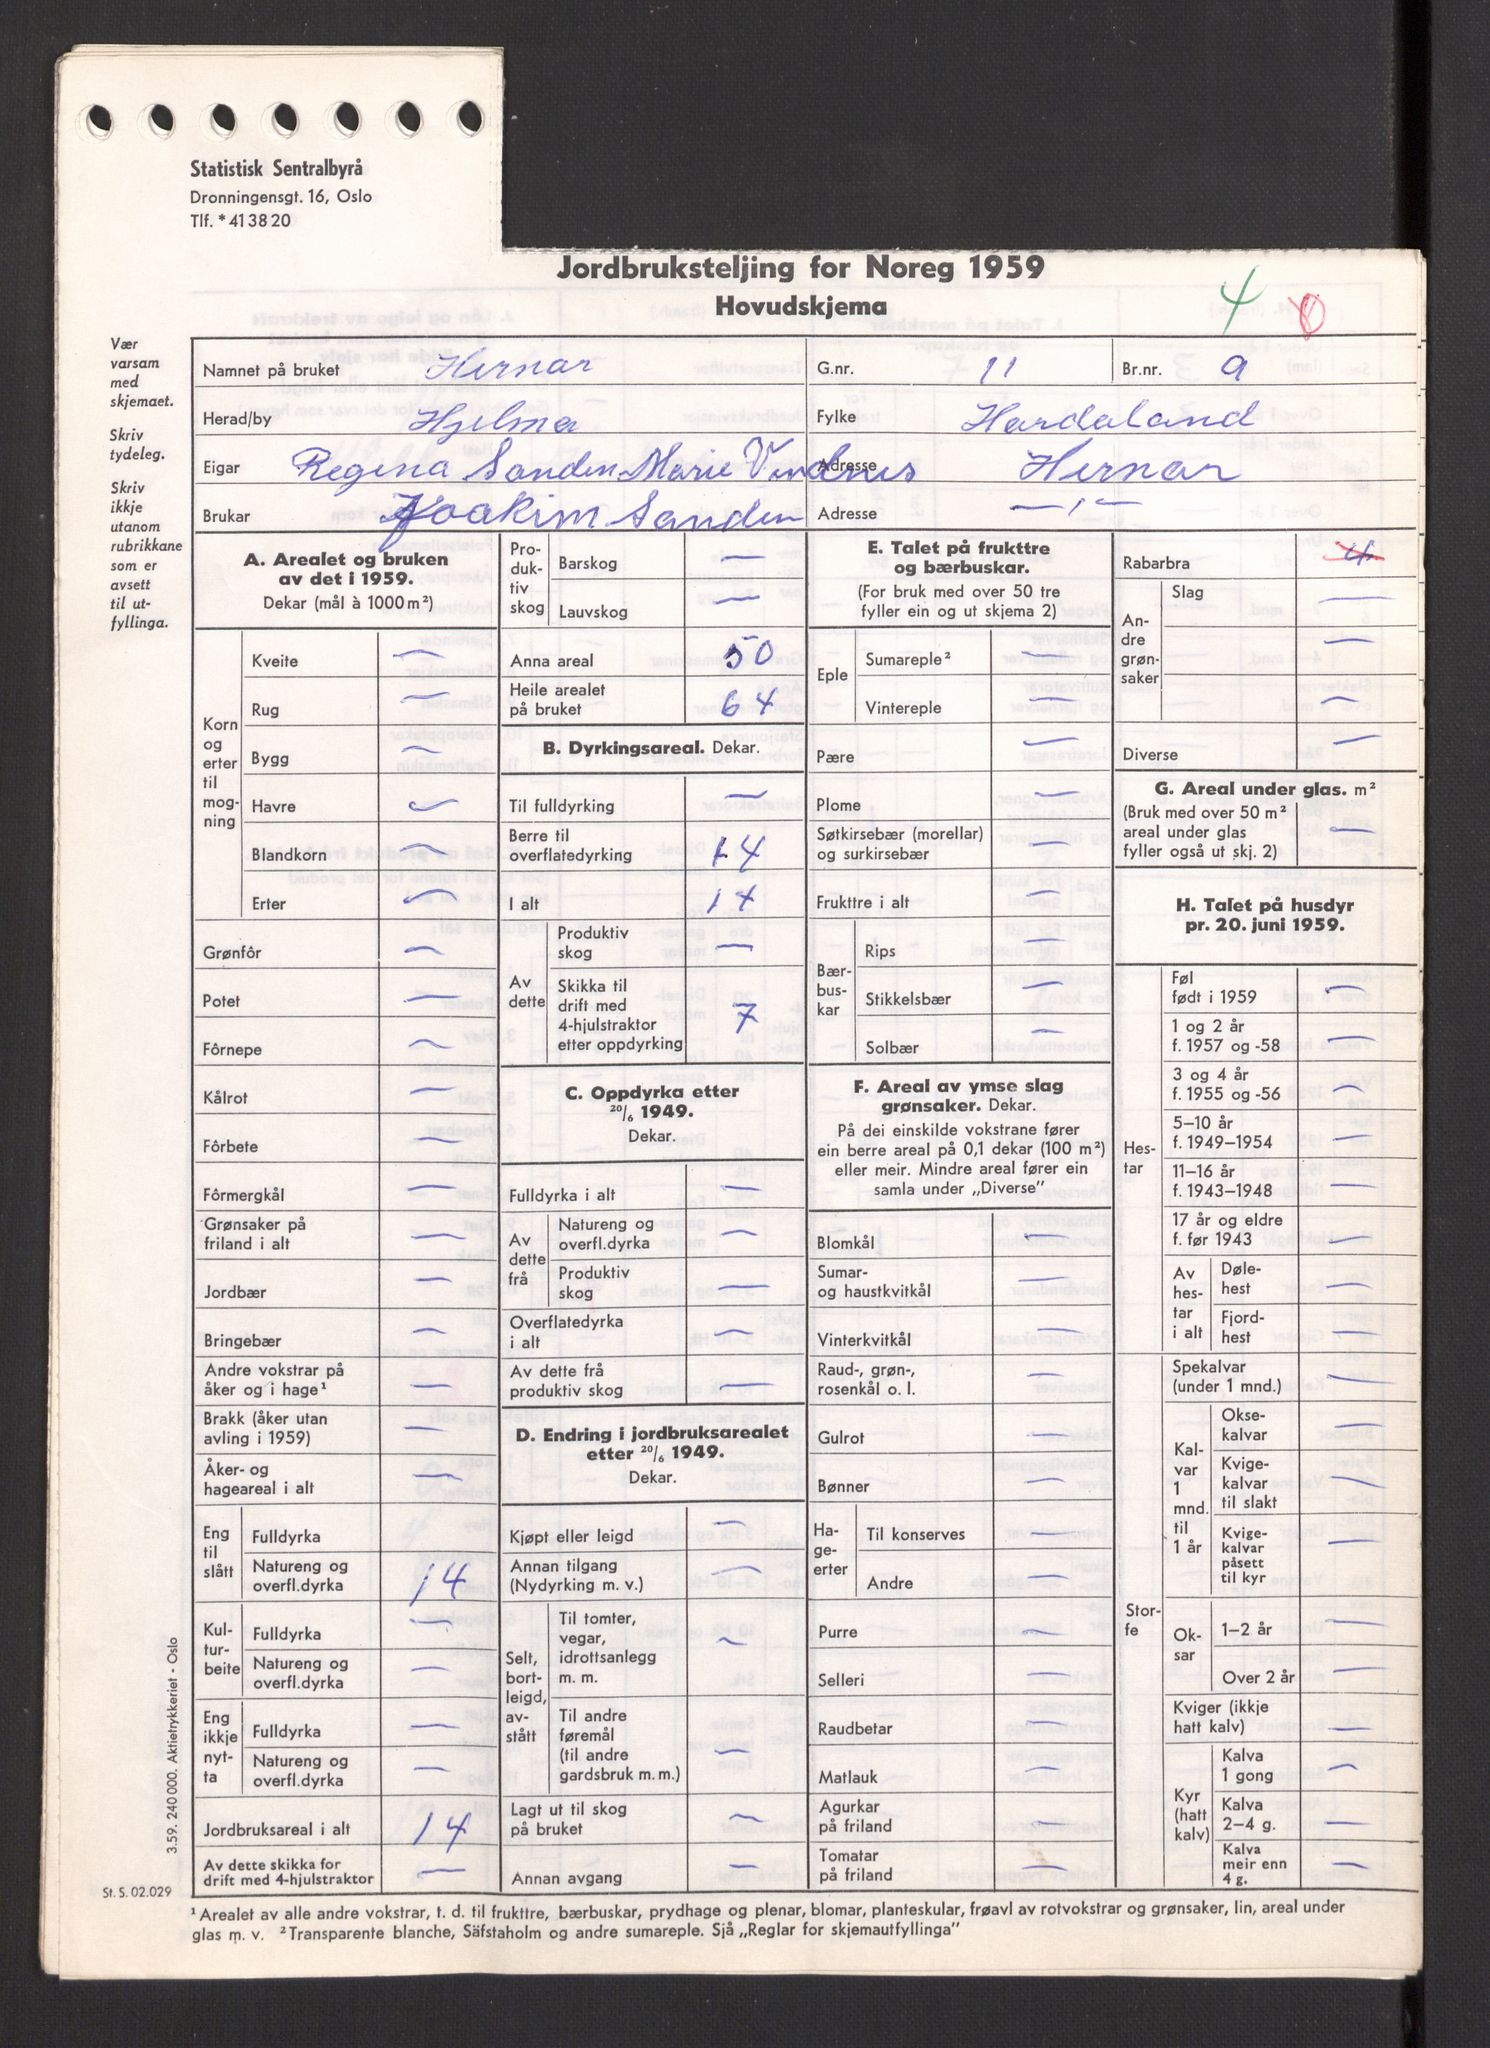 Statistisk Sentralbyrå
Dronningensgt. 16, Oslo
Tlf. *41 38 20
Jordbruksteljing for Noreg 1959
Hovudskjema
4 8
Vær
varsam
med
skjemaet.
Skriv
tydeleg.
Skriv
ikkje
utanom
rubrikkane
som er
avsett
til ut-
fyllinga.
Namnet på bruket Hernar G.nr. 11 Br.nr. 9
Herad/by Hjelma Fylke Hordaland
Eigar Regina Sanden Marie Vindnes Adresse Hernar
Brukar Joakim Sanden Adresse — " —
A. Arealet og bruken
av det i 1959.
Dekar (mål à 1000 m²)
Korn og erter til mog-ning
Kveite —
Rug —
Bygg —
Havre —
Blandkorn —
Erter —
Grønfôr —
Potet —
Fôrnepe —
Kålrot —
Fôrbete —
Fôrmergkål —
Grønsaker på
friland i alt —
Jordbær —
Bringebær —
Andre vokstrar på
åker og i hage¹ —
Brakk (åker utan
avling i 1959) —
Åker- og
hageareal i alt —
Eng til slått
Fulldyrka —
Natureng og
overfl.dyrka 14
Kul-tur-beite
Fulldyrka —
Natureng og
overfl.dyrka —
Eng ikkje nyt-ta
Fulldyrka —
Natureng og
overfl.dyrka —
Jordbruksareal i alt 14
Av dette skikka for
drift med 4-hjulstraktor —
Pro-duk-tiv skog
Barskog —
Lauvskog —
Anna areal 50
Heile arealet
på bruket 64
B. Dyrkingsareal. Dekar.
Til fulldyrking —
Berre til
overflatedyrking 14
I alt 14
Av dette
Produktiv
skog —
Skikka til
drift med
4-hjulstraktor
etter oppdyrking 7
C. Oppdyrka etter
20/6 1949.
Dekar.
Fulldyrka i alt —
Av dette frå
Natureng og
overfl.dyrka —
Produktiv
skog —
Overflatedyrka
i alt —
Av dette frå
produktiv skog —
D. Endring i jordbruksarealet
etter 20/6 1949.
Dekar.
Kjøpt eller leigd —
Annan tilgang
(Nydyrking m. v.) —
Selt, bort-leigd, av-stått
Til tomter,
vegar,
idrottsanlegg
m. m. —
Til andre
føremål
(til andre
gardsbruk m. m.) —
Lagt ut til skog
på bruket —
Annan avgang —
E. Talet på frukttre
og bærbuskar.
(For bruk med over 50 tre
fyller ein og ut skjema 2)
Eple
Sumareple² —
Vintereple —
Pære —
Plome —
Søtkirsebær (morellar)
og surkirsebær —
Frukttre i alt —
Bær-bus-kar
Rips —
Stikkelsbær —
Solbær —
F. Areal av ymse slag
grønsaker. Dekar.
På dei einskilde vokstrane fører
ein berre areal på 0,1 dekar (100 m²)
eller meir. Mindre areal fører ein
samla under „Diverse"
Blomkål —
Sumar-
og haustkvitkål —
Vinterkvitkål —
Raud-, grøn-,
rosenkål o. l. —
Gulrot —
Bønner —
Ha-ge-erter
Til konserves —
Andre —
Purre —
Selleri —
Raudbetar —
Matlauk —
Agurkar
på friland —
Tomatar
på friland —
Rabarbra 4
An-dre grøn-saker
Slag —
—
—
Diverse —
G. Areal under glas. m²
(Bruk med over 50 m²
areal under glas
fyller også ut skj. 2) —
H. Talet på husdyr
pr. 20. juni 1959.
Hes-tar
Føl
født i 1959 —
1 og 2 år
f. 1957 og -58 —
3 og 4 år
f. 1955 og -56 —
5–10 år
f. 1949–1954 —
11–16 år
f. 1943–1948 —
17 år og eldre
f. før 1943 —
Av hes-tar i alt
Døle-
hest —
Fjord-
hest —
Stor-fe
Spekalvar
(under 1 mnd.) —
Kal-var 1 mnd. til 1 år
Okse-
kalvar —
Kvige-
kalvar
til slakt —
Kvige-
kalvar
påsett
til kyr —
Ok-sar
1–2 år —
Over 2 år —
Kviger (ikkje
hatt kalv) —
Kyr (hatt kalv)
Kalva
1 gong —
Kalva
2–4 g. —
Kalva
meir enn
4 g. —
3.59. 240 000. Aktietrykkeriet - Oslo
St. S. 02.029
¹ Arealet av alle andre vokstrar, t. d. til frukttre, bærbuskar, prydhage og plenar, blomar, planteskular, frøavl av rotvokstrar og grønsaker, lin, areal under
glas m. v. ² Transparente blanche, Säfstaholm og andre sumareple. Sjå „Reglar for skjemautfyllinga"